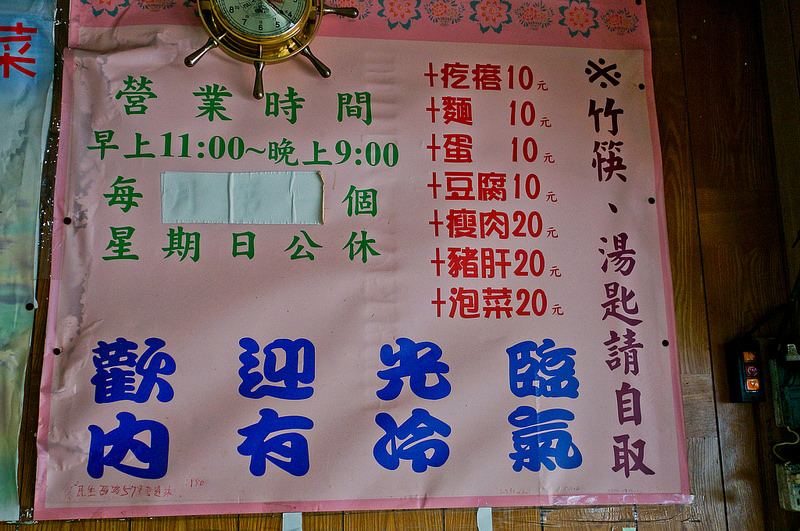 菜
營業時間
早上11:00~晚上9:00
每 個
星期日公休
+疙瘩10元
+麵 10元
+蛋 10元
+豆腐10元
+瘦肉20元
+豬肝20元
+泡菜20元
※竹筷、湯匙請自取
歡迎光臨
內有冷氣